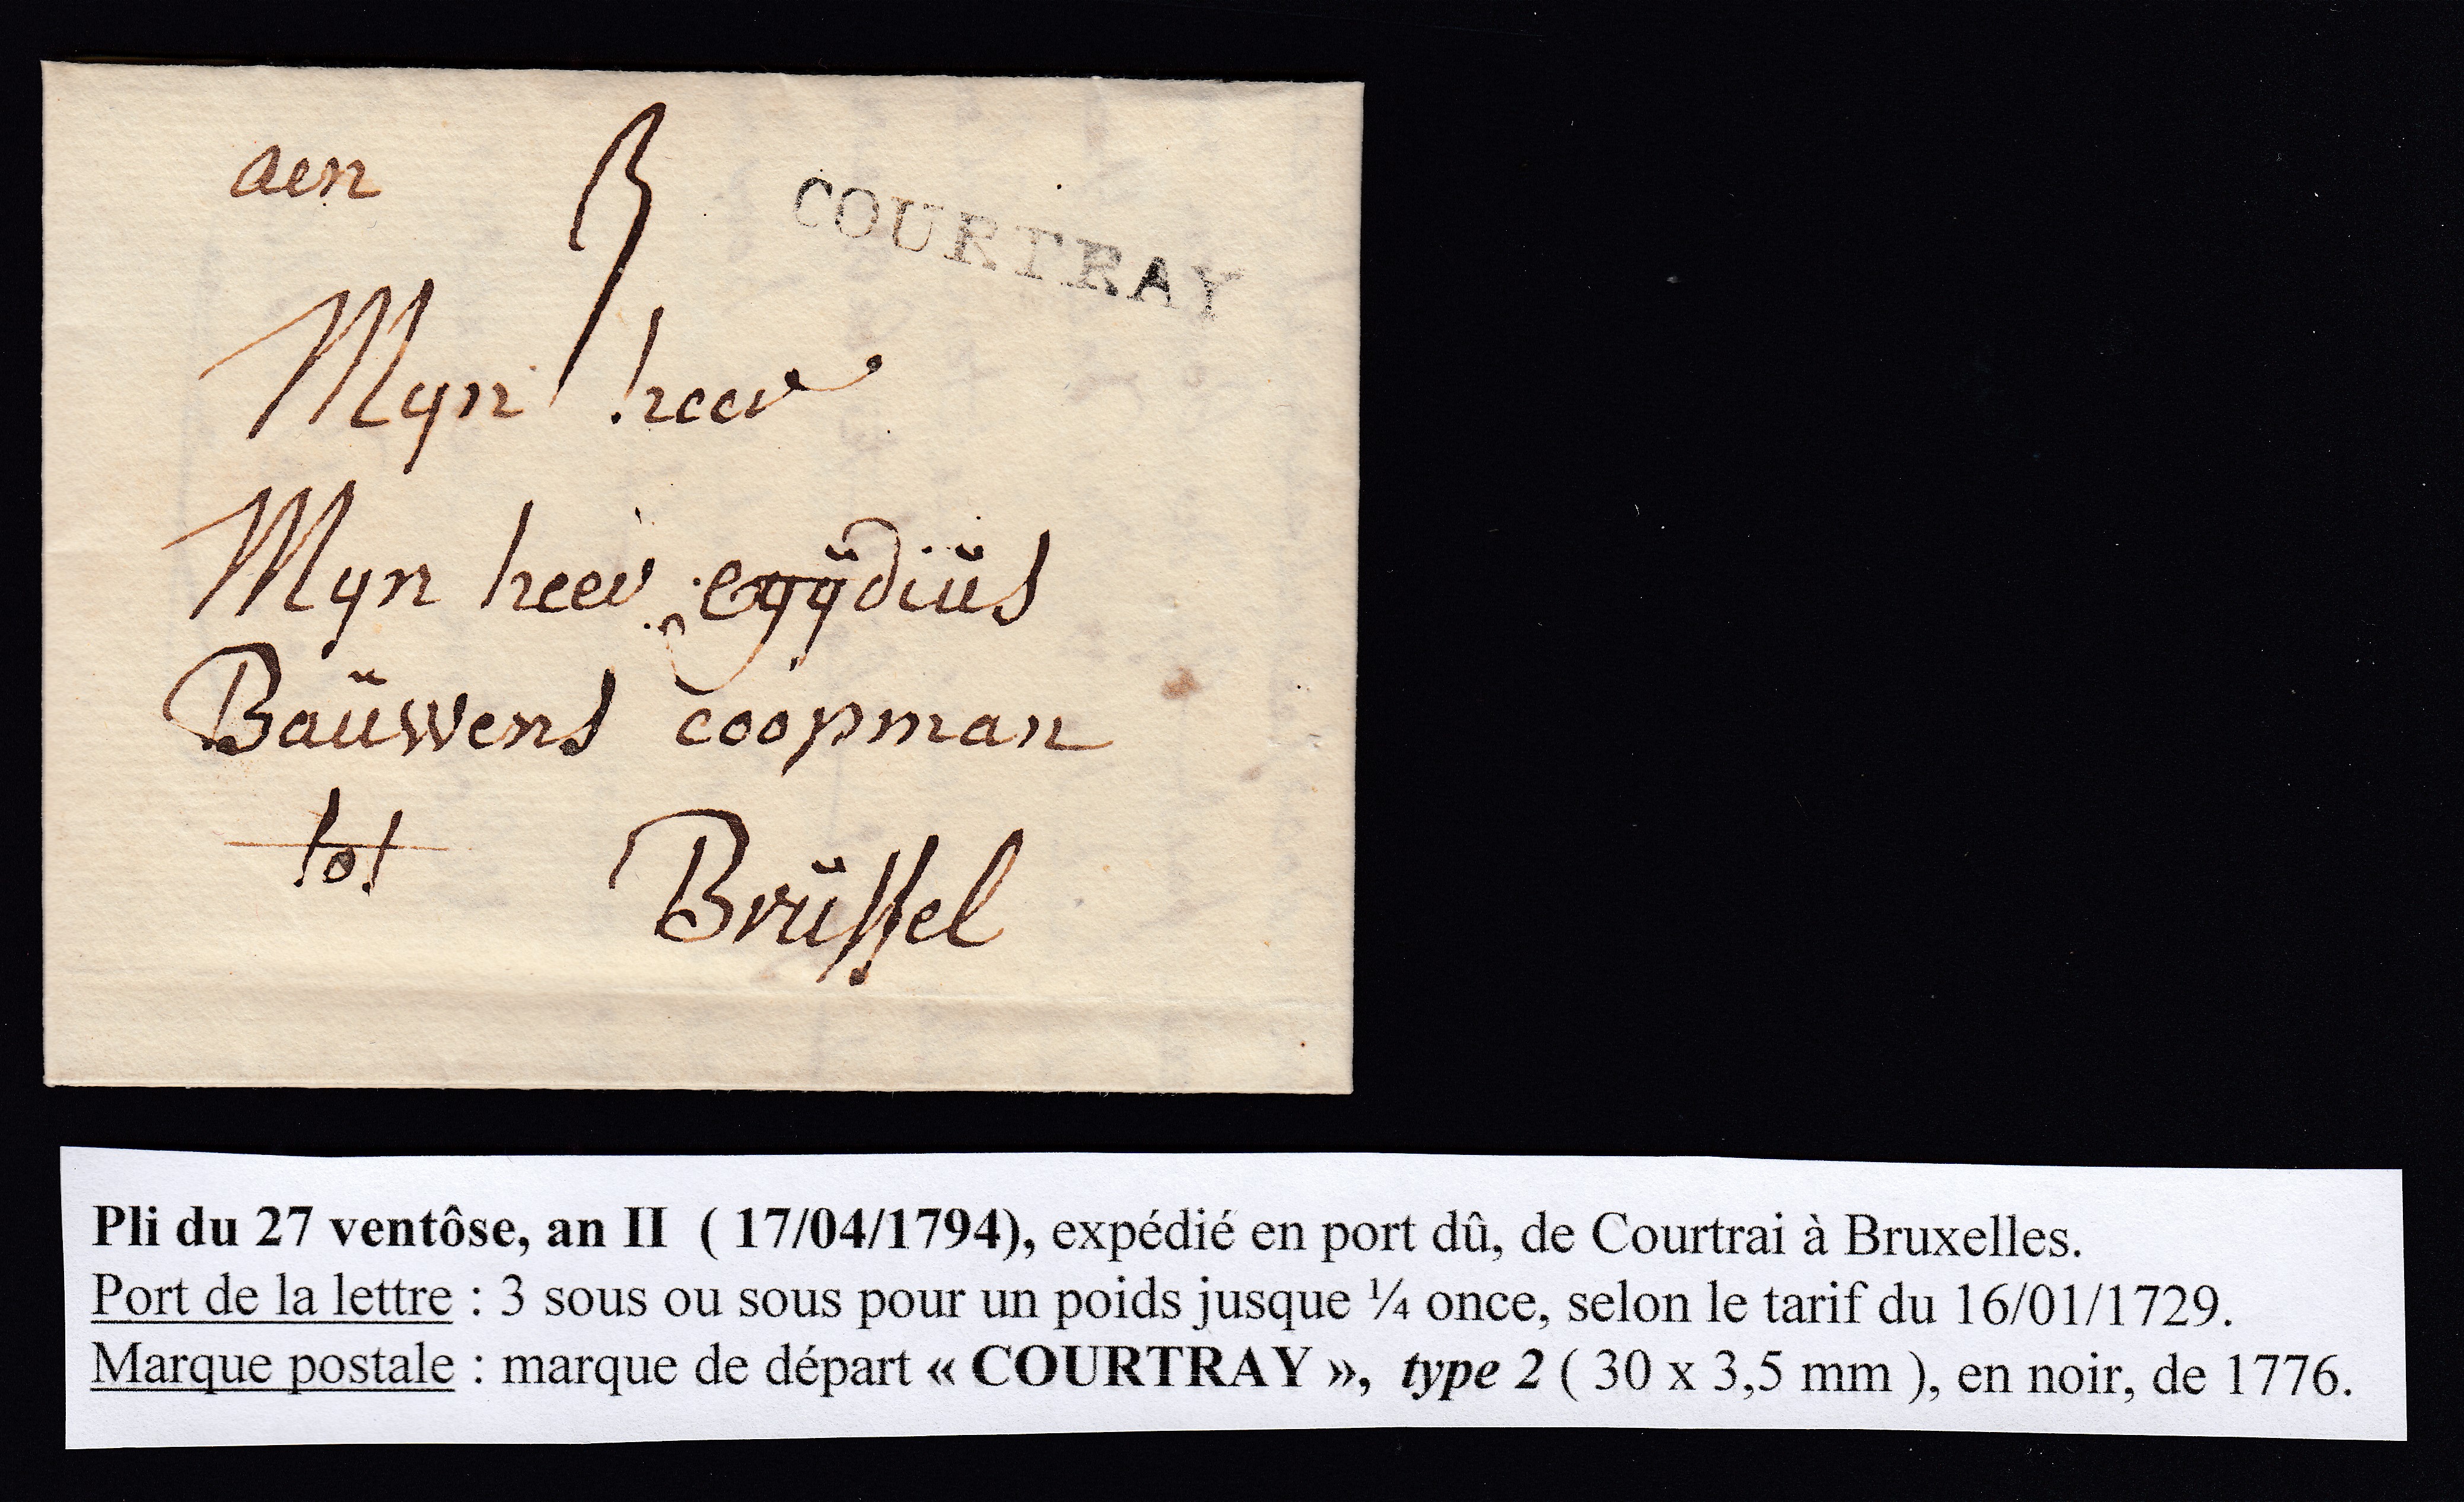 aen 3 COURTRAY
Myn heer
Myn heer egÿdiüs
Baüwens coopman
tot Brüssel
Pli du 27 ventôse, an II ( 17/04/1794), expédié en port dû, de Courtrai à Bruxelles.
Port de la lettre : 3 sous ou sous pour un poids jusque ¼ once, selon le tarif du 16/01/1729.
Marque postale : marque de départ « COURTRAY », type 2 ( 30 x 3,5 mm ), en noir, de 1776.